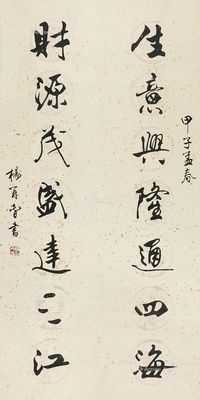 甲子孟春
生意興隆通四海
財源茂盛達三江
楊
書